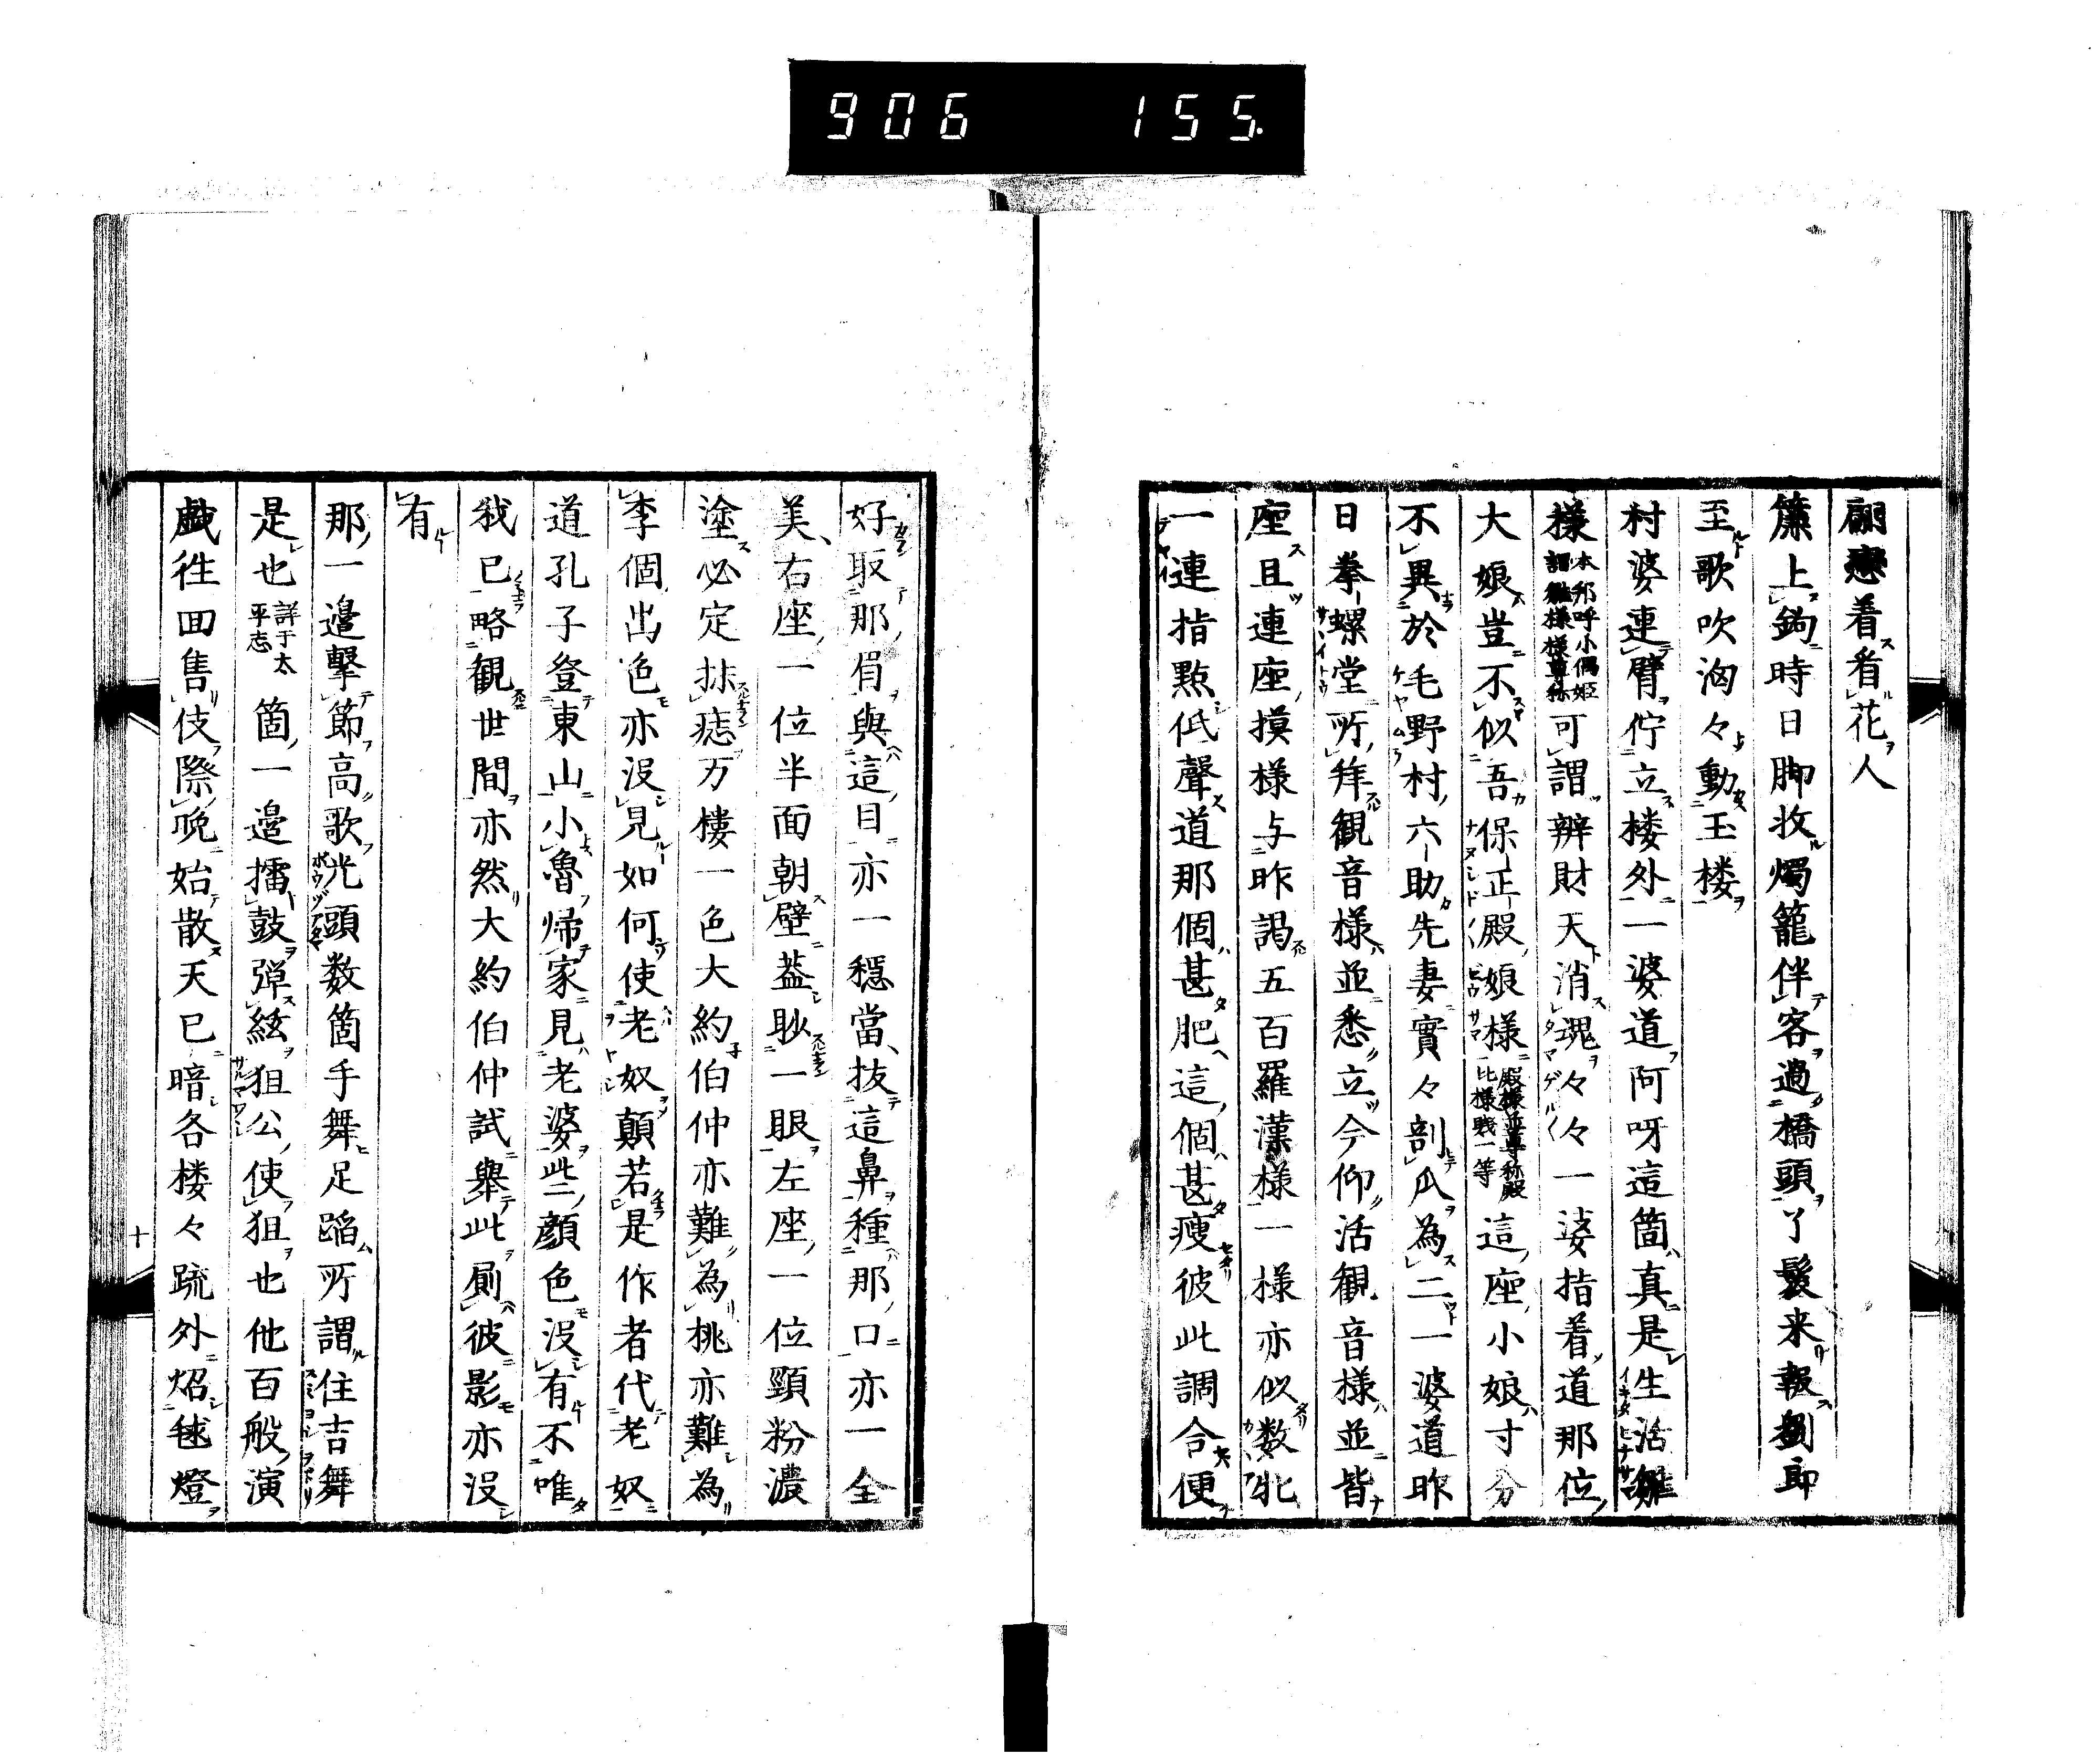 906 155.
翩戀着看花人
簾上鉤時日脚收燭籠伴客過橋頭了鬟来報劉郎
至歌吹洶々動玉楼
村婆連臂佇立楼外一婆道阿呀這箇真是生活雛
様本邦呼小偶姫謂雛様様尊称可謂辨財天消魂々々一婆指着道那位
大娘豈不似吾保正殿娘様殿様並尊称殿比様戝一等這座小娘寸分
不異於毛野村六助先妻實々剖瓜為二一婆道昨
日拳螺堂所拜観音様並悉立今仰活観音様並皆
座且連座摸様与昨謁五百羅漢様一様亦似数牝
一連指點低聲道那個甚肥這個甚瘦彼此調合便
好取那眉與這目亦一穩當抜這鼻種那口亦一全
美右座一位半面朝壁蓋眇一眼左座一位頸粉濃
塗必定抹痣万樓一色大約伯仲亦難為桃亦難為
李個出色亦没見如何使老奴顛若是作者代老奴
道孔子登東山小魯帰家見老婆些顔色没有不唯
我已略観世間亦然大約伯仲試舉此厠彼影亦没
有
那一邉撃節高歌光頭数箇手舞足蹈所謂住吉舞
是也詳于太平志箇一邉擂鼓弾絃狙公使狙也他百般演
戯徃回售伎際晩始散天已暗各楼々疏外炤毬燈
十